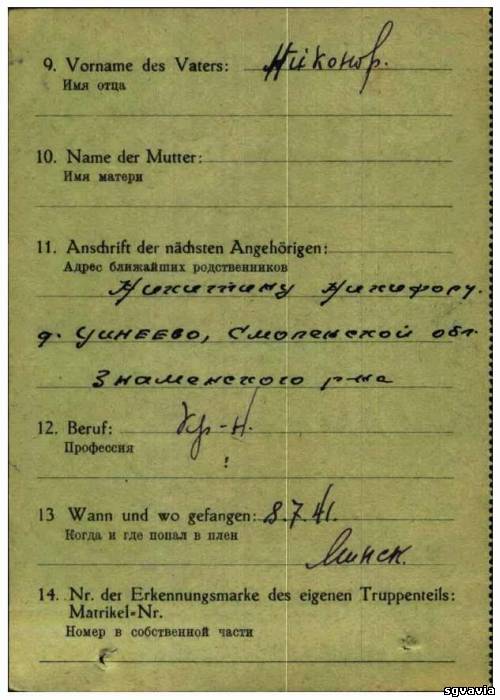 9. Vorname des Vaters: Никонор.
Имя отца
10. Name der Mutter:
Имя матери
11. Anschrift der nächsten Angehörigen:
Адрес ближайших родственников
Никитину Никифору.
д. Чинеево, Смоленской обл
Знаменского р-на
12. Beruf: Кр-н.
Профессия
!
13 Wann und wo gefangen: 8.7.41.
Когда и где попал в плен
Минск.
14. Nr. der Erkennungsmarke des eigenen Truppenteils:
Matrikel-Nr.
Номер в собственной части
sgvavia